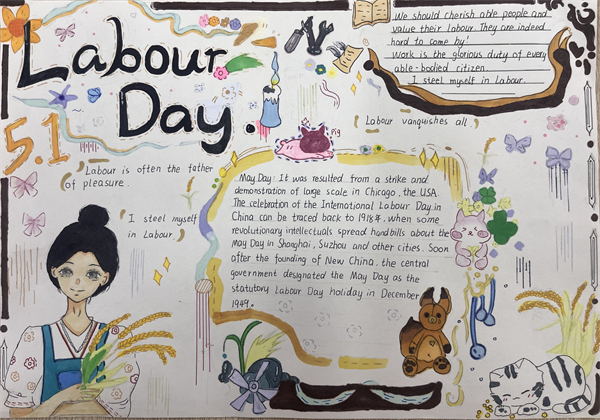 Labour
Day.
5.1
We should cherish able people and
value their labour. They are indeed
hard to come by!
Work is the glorious duty of every
able-bodied citizen.
I steel myself in Labour.
Labour vanquishes all.
Pig
Labour is often the father
of pleasure.
I steel myself
in Labour.
May Day: It was resulted from a strike and
demonstration of large scale in Chicago, the USA.
The celebration of the International Labour Day in
China can be traced back to 1918年, when some
revolutionary intellectuals spread handbills about the
May Day in Shanghai, Suzhou and other cities. Soon
after the founding of New China, the central
government designated the May Day as the
statutory Labour Day holiday in December
1949.